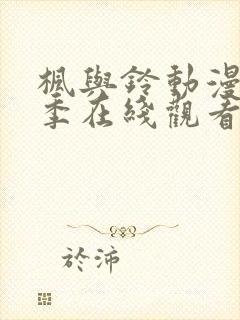 楓與鈴動漫
季在綫觀看
於沛